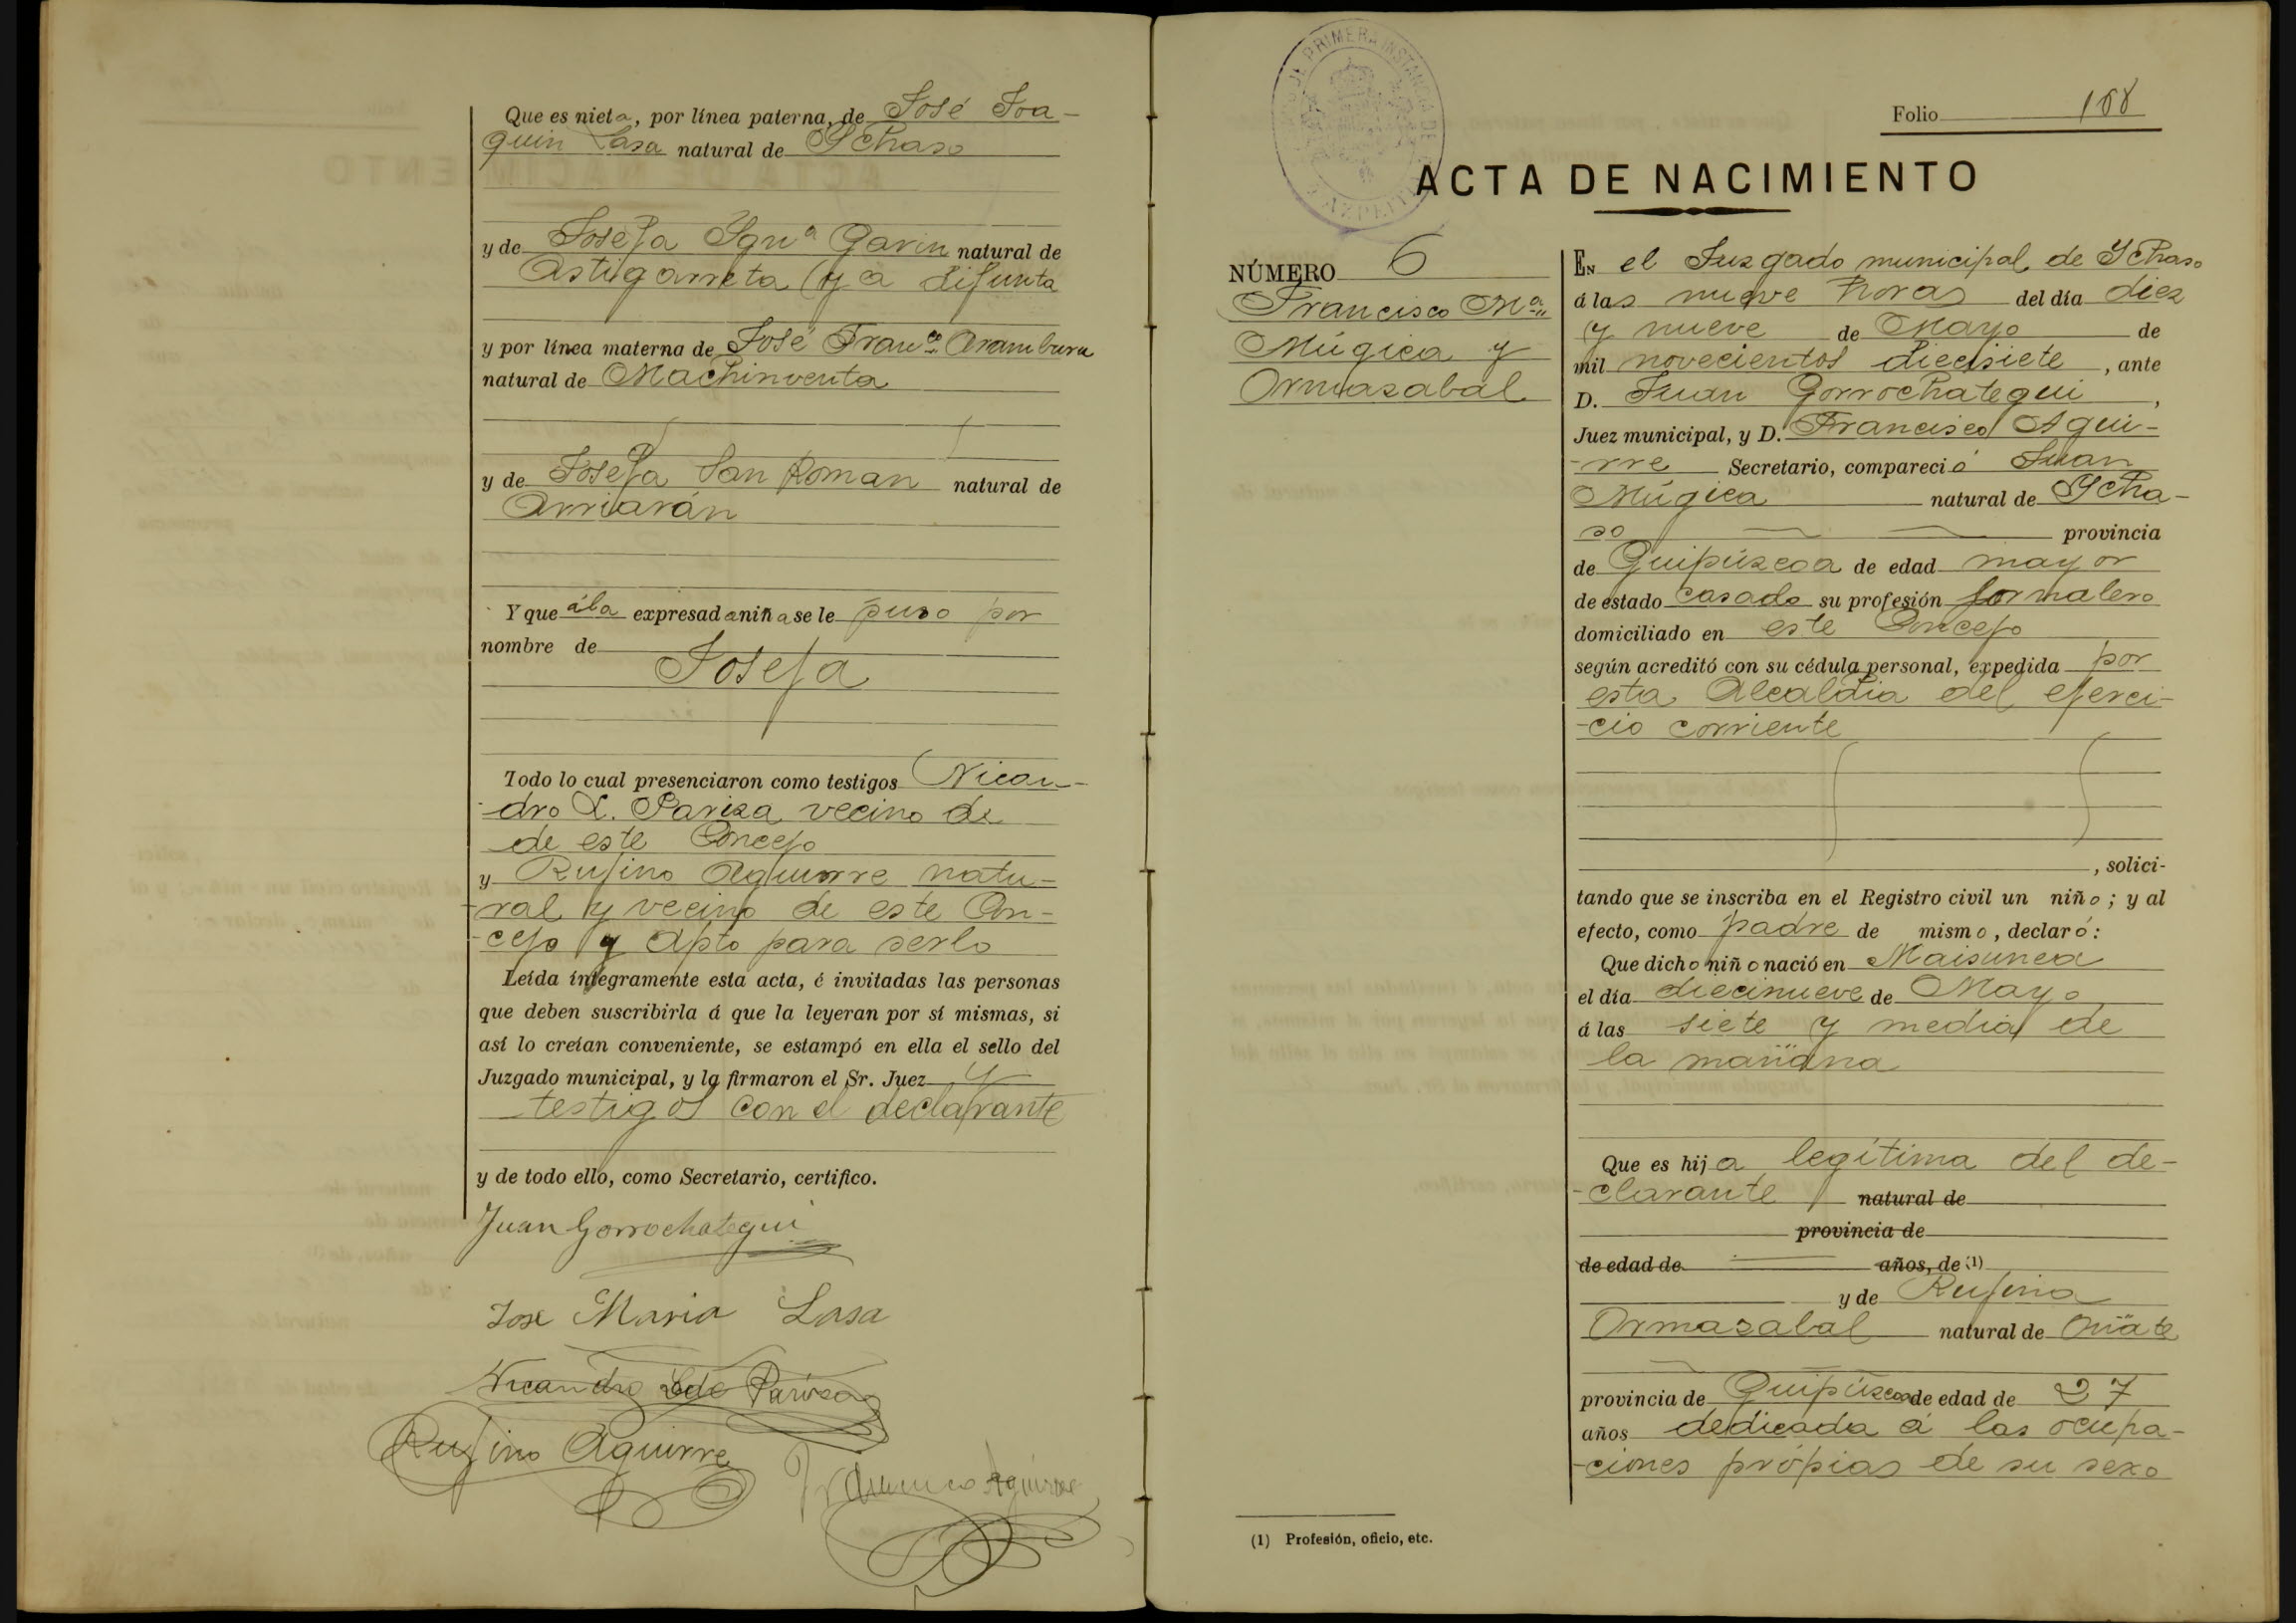 Que es nieta, por línea paterna, de José Joa-
quin Lasa natural de Ychaso
y de Josefa Ignª Garin natural de
Astigarreta (ya difunta
y por línea materna de José Franco Aramburu
natural de Machinventa
y de Josefa San Roman natural de
Arriarán
Y que á la expresada niña se le puso por
nombre de
Josefa
Todo lo cual presenciaron como testigos Nican-
-dro L. Pariza vecino de
de este Concejo
y Rufino Aguirre natu-
-ral y vecino de este Con-
-cejo y apto para serlo
Leída íntegramente esta acta, é invitadas las personas
que deben suscribirla á que la leyeran por sí mismas, si
así lo creían conveniente, se estampó en ella el sello del
Juzgado municipal, y la firmaron el Sr. Juez y
testigos con el declarante
y de todo ello, como Secretario, certifico.
Juan Gorrochategui
Jose Maria Lasa
Nicandro Pariza
Rufino Aguirre
Francisco Aguirre
DE PRIMERA INSTANCIA DE
AZPEITIA
Folio 168
ACTA DE NACIMIENTO
NÚMERO 6
Francisco Mª
Múgica y
Ormasabal
EN el Juzgado municipal de Ychaso
á las nueve horas del día diez
y nueve de Mayo de
mil novecientos diecisiete, ante
D. Juan Gorrochategui,
Juez municipal, y D. Francisco Agui-
-rre Secretario, compareció Juan
Múgica natural de Ycha-
so provincia
de Guipúzcoa de edad mayor
de estado casado su profesión jornalero
domiciliado en este Concejo
según acreditó con su cédula personal, expedida por
esta Alcaldia del ejerci-
-cio corriente
, solici-
tando que se inscriba en el Registro civil un niño; y al
efecto, como padre de mismo, declaró:
Que dicho niño nació en Maisunea
el día diecinueve de Mayo
á las siete y media de
la mañana
Que es hija legítima del de-
-clarante natural de
provincia de
de edad de años, de (1)
y de Rufina
Ormasabal natural de Oñate
provincia de Guipúzcoa de edad de 27
años dedicada á las ocupa-
-ciones própias de su sexo
(1) Profesión, oficio, etc.